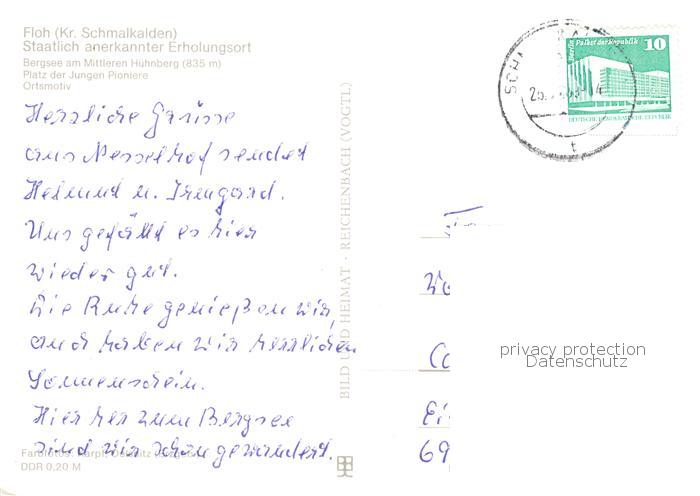 Floh (Kr. Schmalkalden)
Staatlich anerkannter Erholungsort
Bergsee am Mittleren Hühnberg (835 m)
Platz der Jungen Pioniere
Ortsmotiv
Herzliche Grüsse
aus Nesselhof sendet
Helmud u. Irmgard.
Uns gefällt es hier
wieder gut.
Die Ruhe genießen wir,
auch haben wir herrlichen
Sonnenschein.
Hier her zum Bergsee
sind wir schon gewandert.
Farbfotos:
DDR 0,20 M
BILD UND HEIMAT · REICHENBACH (VOGTL)
Berlin Palast der Republik 10
DEUTSCHE DEMOKRATISCHE REPUBLIK
SCHMALKALDEN
t
Co
Ei
69
privacy protection
Datenschutz